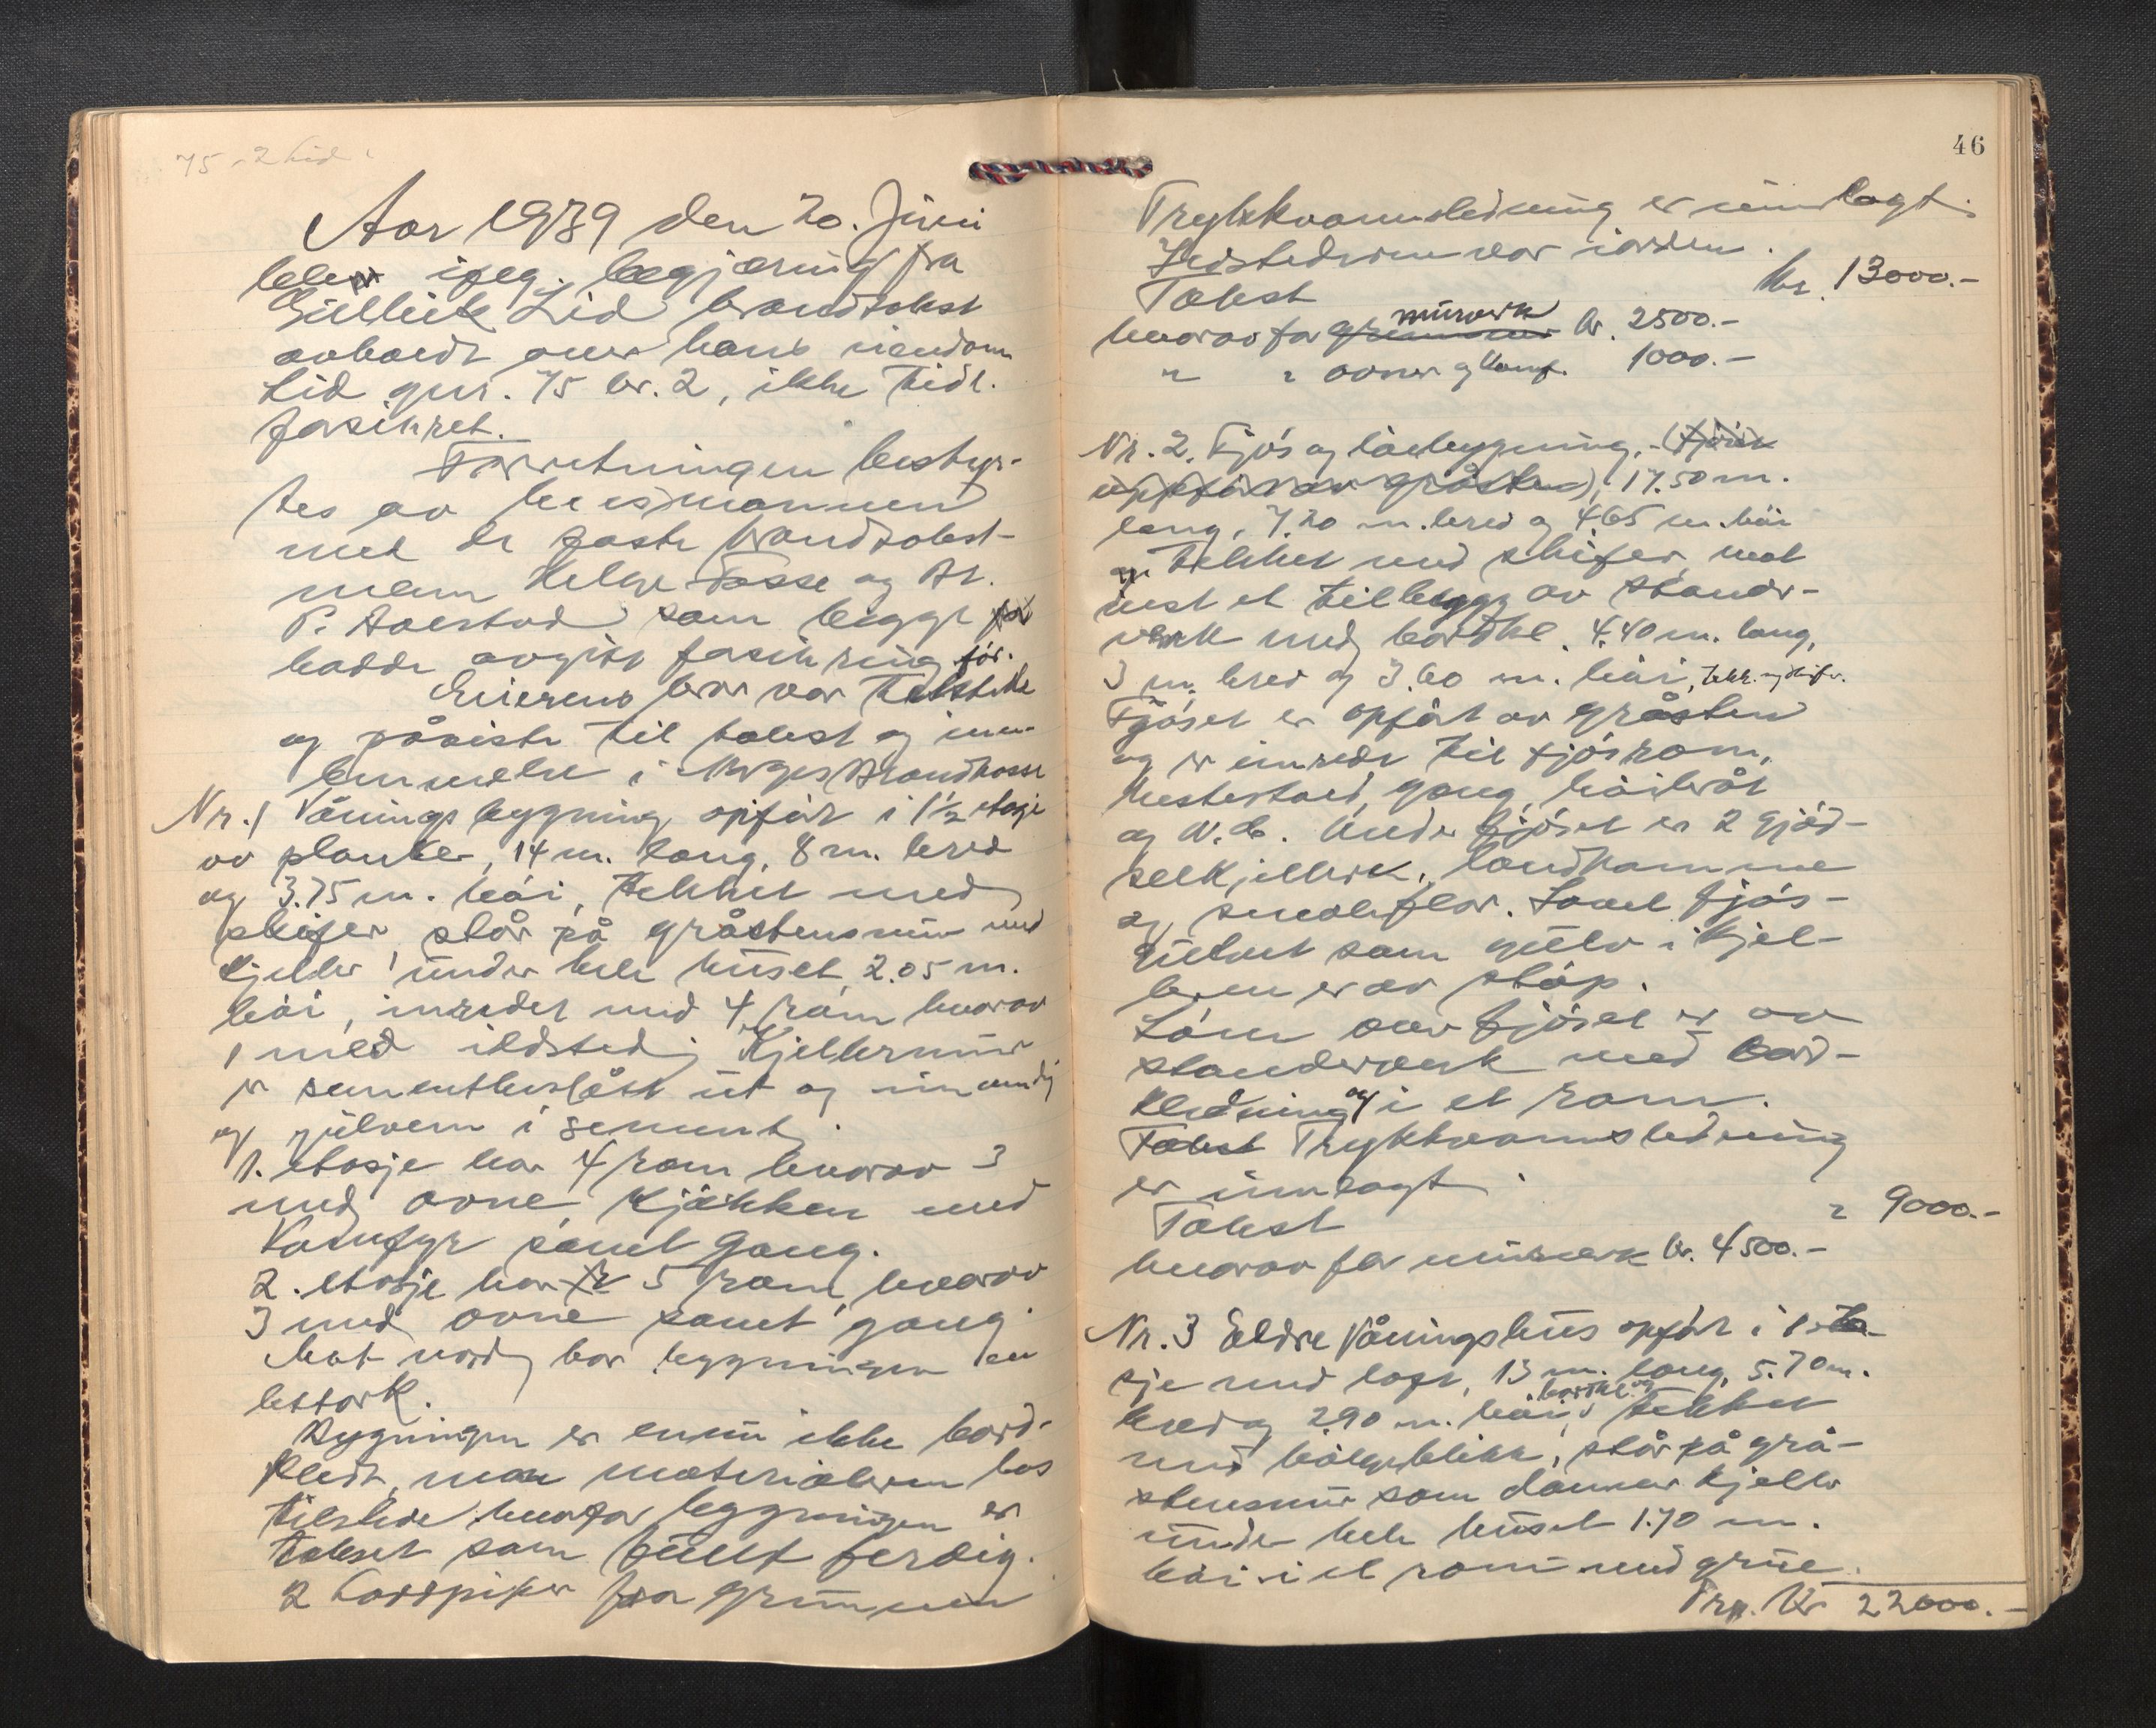 75 - 2 Lid
Aar 1939 den 20. Juni
blev ifølg. begjæring fra
Gullleik Lid brandtakst
avholdt over hans eiendom
Lid gnr. 75 br. 2, ikke tidl.
forsikret.
Forretningen bestyr-
tes av lensmannen
med de faste brandtakst-
menn Helge Fosse og Br.
P. Aalstad som begge
hadde avgitt forsikring før.
Eierens bror var tilstede
og påviste til takst og inn-
lemmelse i Norges Brandkasse
Nr. 1 Våningsbygning opført i 1½ etasje
av planker, 14 m. lang, 8 m. bred
og 3.75 m. høi, tekket med
skifer, står på gråstensmur med
kjeller under hele huset, 2.05 m.
høi, innredet med 4 rom hvorav
1 med ildsted, Kjellermur
er sementbeslått ut og innvendig
og gulvem i sement.
1. etasje har 4 rom hvorav 3
med ovne, kjøkken med
Komfyr samt gang.
2. etasje har 5 rom, hvorav
3 med ovne samt gang.
Mot nord har bygningen en
bislag.
Bygningen er ennu ikke bord-
kledt, men materialerne las
tilstede hvorfor bygningen er
takset som fullt ferdig.
2 Lodspiper fra grunnen
46
Trykkvannsledning er innlagt.
Ildstederne var iorden.
Takst kr. 13000.-
hvorav for grunnmur murverk kr. 2500.-
" " ovner og komf. 1000.-
Nr. 2. Fjøs og løebygning. (Fjøset
oppført av gråsten), 17.50 m.
lang, 7.20 m. bred og 4.65 m. høi
og tekket med skifer, mot
vest et tilbygg av stander-
verk med bordkl. 4.40 m. lang,
3 m. bred og 3.60 m. høi, tekk. m. skifer.
Fjøset er opført av gråsten
og er innredt til fjøsrom,
hestestald, gang, høibrøt
og W.C. Under fjøset er 2 gjød-
selkjellere, landkamme
og smaleflor. Såvel fjøs-
gulvet som gulv i kjel-
leren er av støp.
Løen over fjøset er av
standerverk med bord-
kledning og i et rom.
Takst Trykkvannsledning
er innlagt.
Takst " 9000.-
hvorav for murverk kr. 4500.-
Nr. 3 Eldre Våningshus opført i 1 eta-
sje med loft, 13 m. lang, 5.70 m.
bred og 2.90 m. høi, bordkl. og tekket
med bølgeblikk, står på grå-
stensmur som danner kjeller
under hele huset 1.70 m.
høi i et rom med grue.
Trp. Kr 22000.-